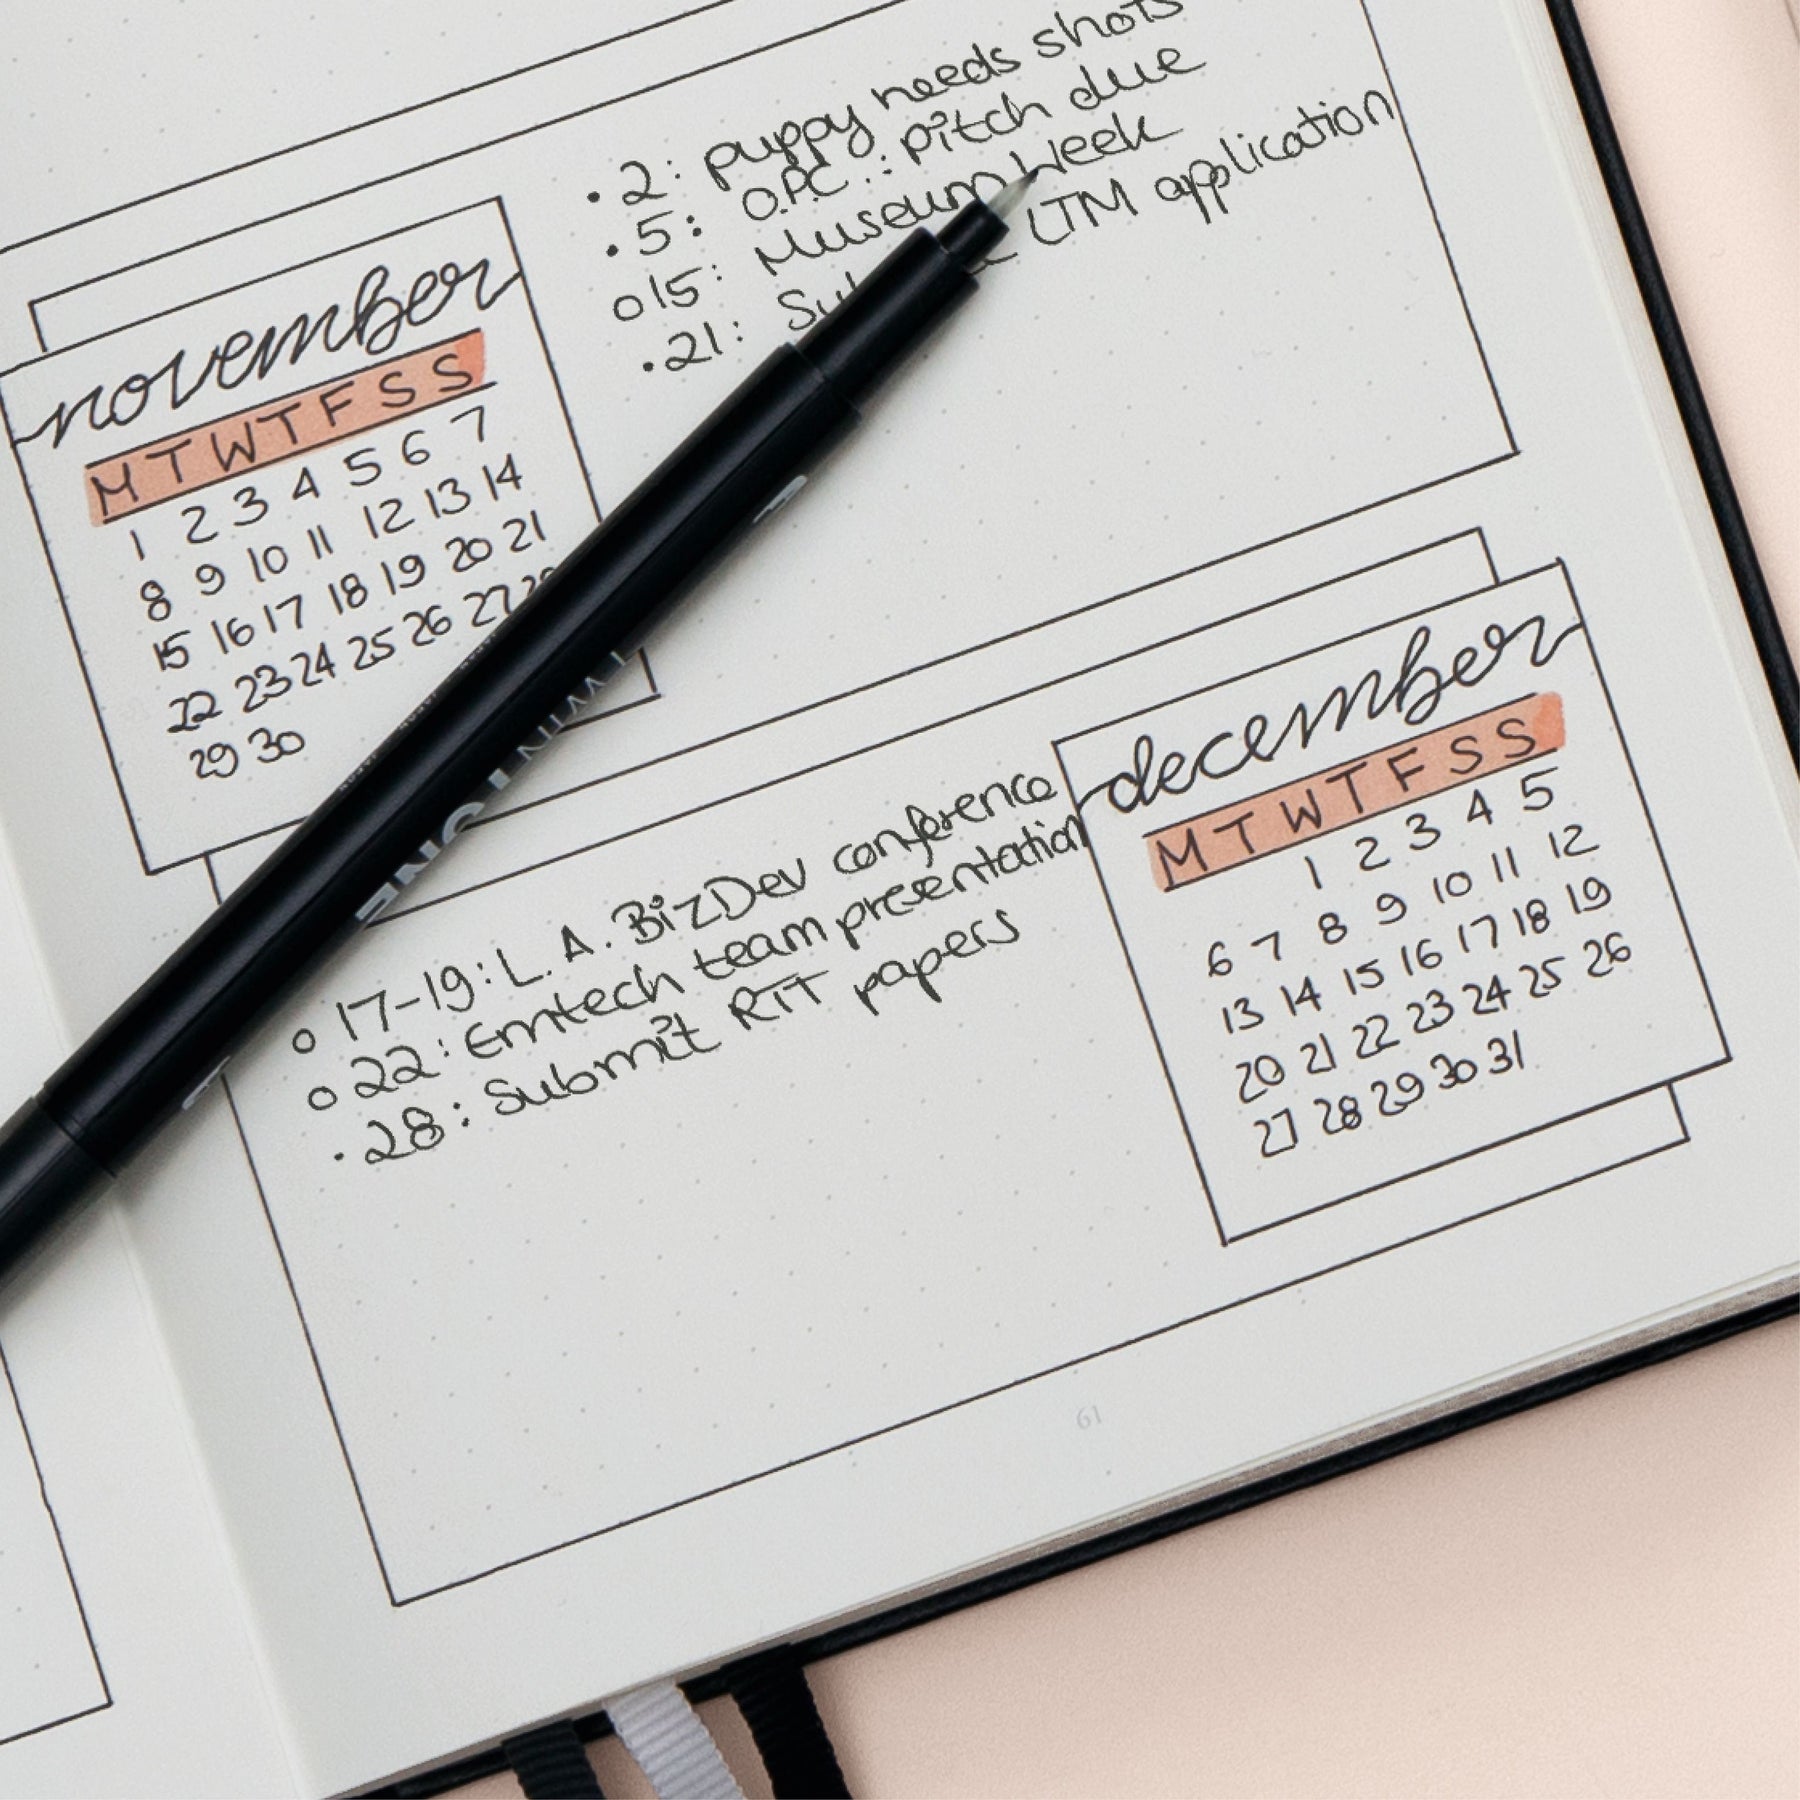 • 2: puppy needs shots
• 5: O.P.C.: pitch due
o 15: Museum Week
• 21: LTM application
november
M T W T F S S
1 2 3 4 5 6 7
8 9 10 11 12 13 14
15 16 17 18 19 20 21
22 23 24 25 26 27 28
29 30
o 17-19: L.A. BizDev conference
o 22: Emtech team presentation
• 28: Submit RTT papers
december
M T W T F S S
1 2 3 4 5
6 7 8 9 10 11 12
13 14 15 16 17 18 19
20 21 22 23 24 25 26
27 28 29 30 31
61